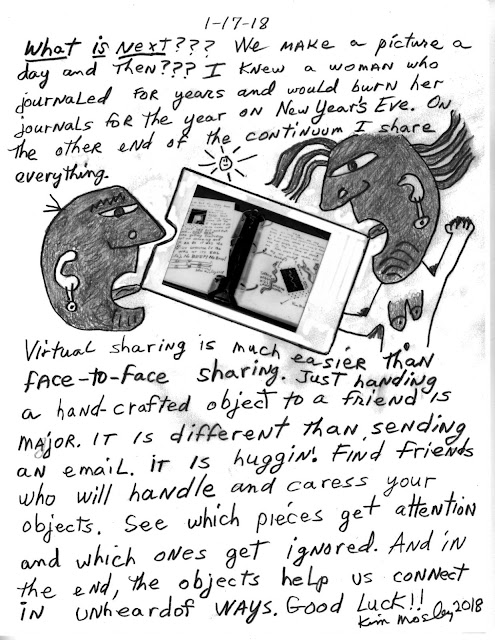 1-17-18
What is Next??? We make a picture a
day and then??? I knew a woman who
journaled for years and would burn her
journals for the year on New Year's Eve. On
the other end of the continuum I share
everything.
Virtual sharing is much easier than
face-to-face sharing. Just handing
a hand-crafted object to a friend is
major. It is different than sending
an email. It is huggin'. Find friends
who will handle and caress your
objects. See which pieces get attention
and which ones get ignored. And in
the end, the objects help us connect
in unheardof ways. Good Luck!!
Kim Mosley 2018